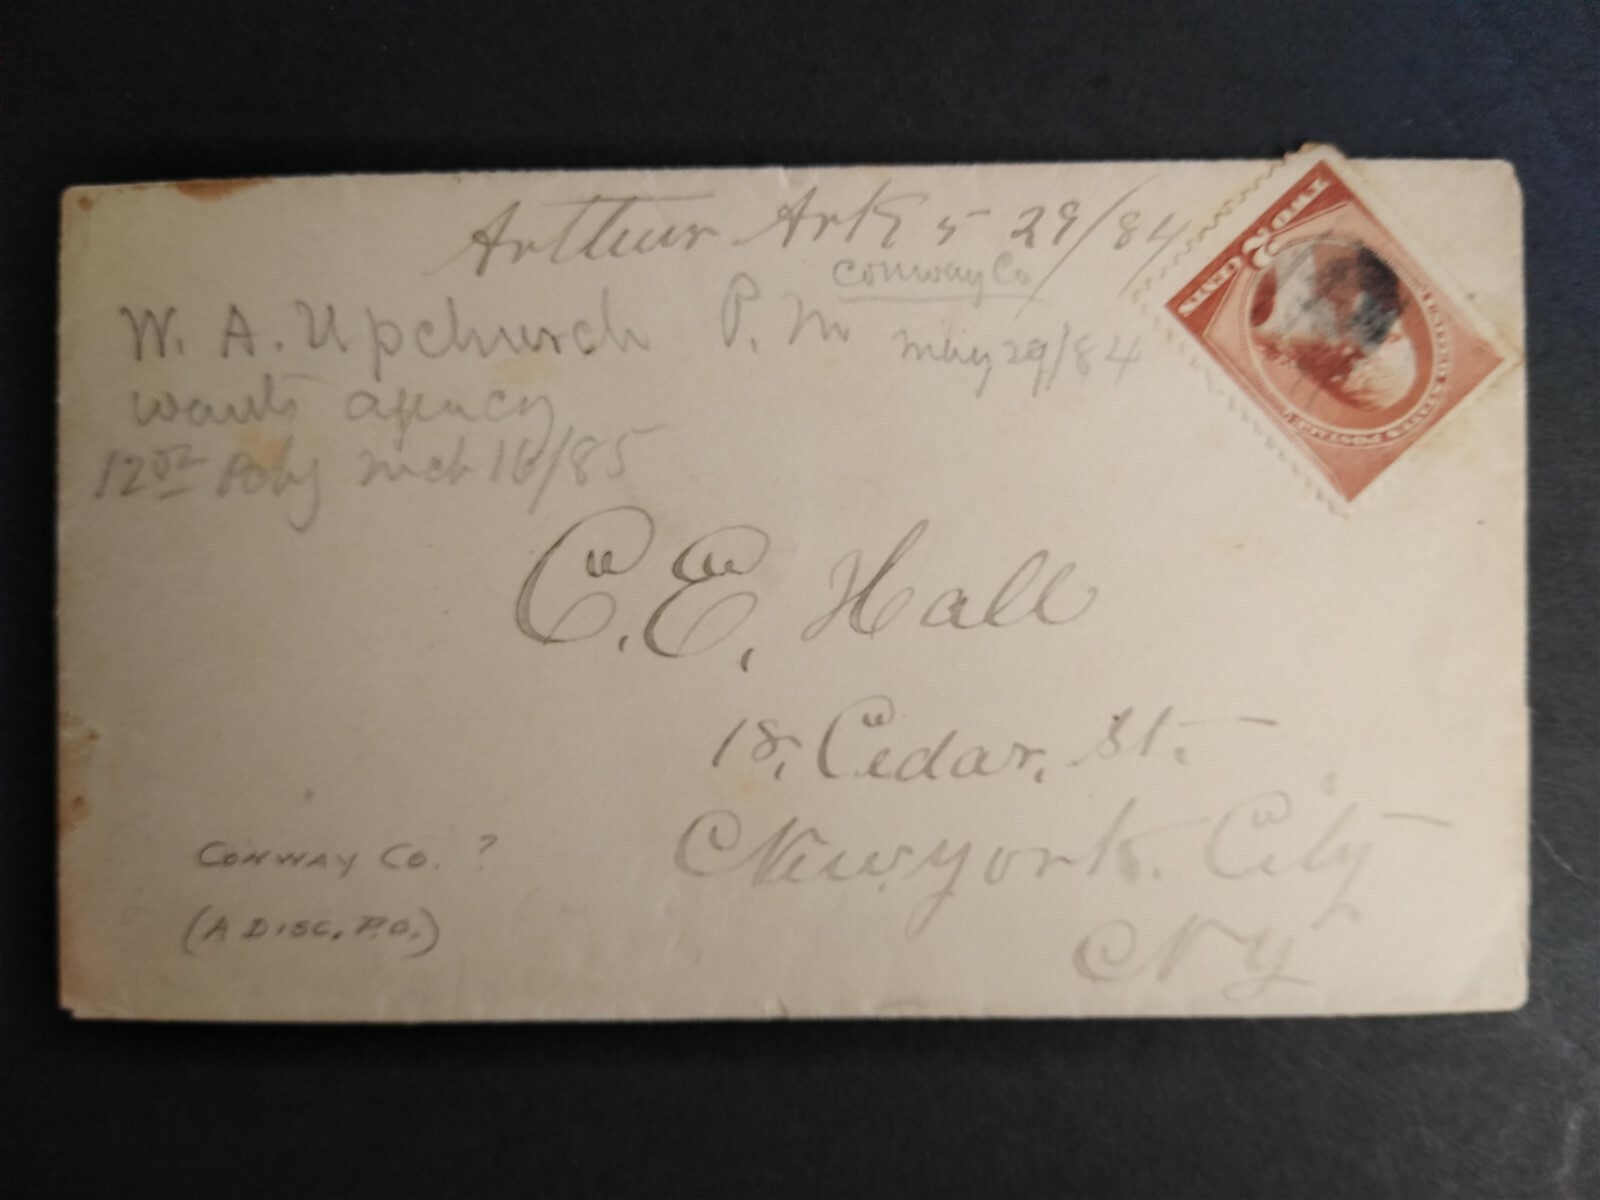 Arthur Ark 5 29/84
Conway Co
W. A. Upchurch P. M May 29/84
wants agency
12 Mch 16/85
C. E. Hall
18, Cedar, St.
New york. City
Ny
CONWAY CO. ?
(A DISC. P.O.)
TWO 2 CENTS
UNITED STATES POSTAGE